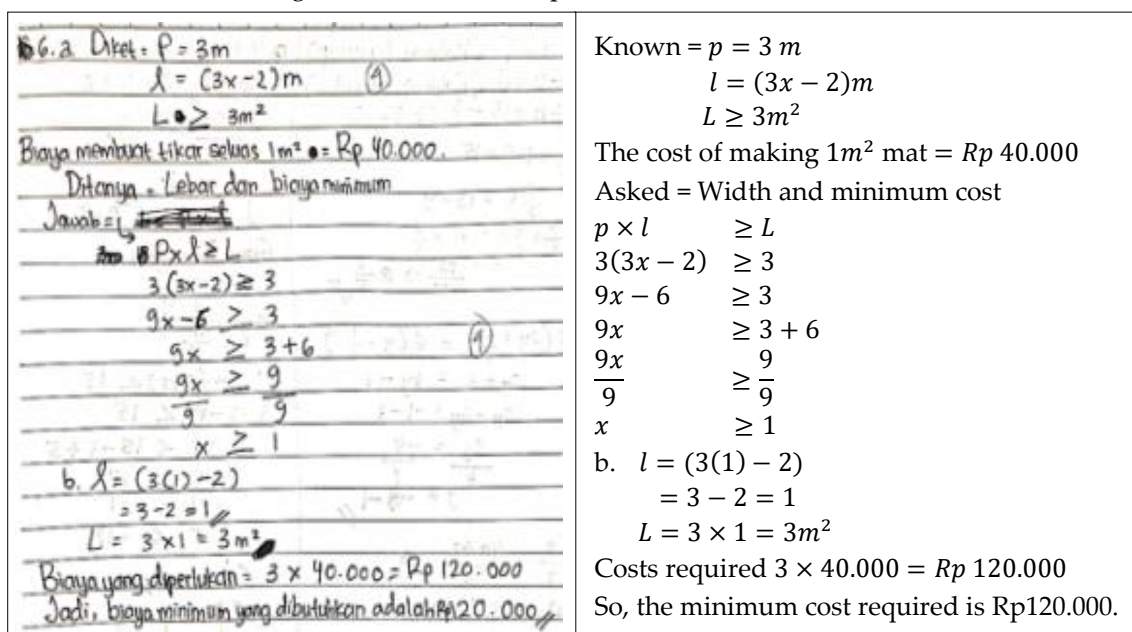 6.a Diket = P = 3m
l = (3x-2)m (4)
L ≥ 3m²
Biaya membuat tikar seluas 1m² = Rp 40.000.
Ditanya = Lebar dan biaya minimum
Jawab =
P x l ≥ L
3(3x-2) ≥ 3
9x-6 ≥ 3
9x ≥ 3+6
9x/9 ≥ 9/9
x ≥ 1
b. l = (3(1)-2)
= 3-2 = 1
L = 3 x 1 = 3m²
Biaya yang diperlukan = 3 x 40.000 = Rp 120.000
Jadi, biaya minimum yang dibutuhkan adalah Rp120.000
Known = p = 3 m
l = (3x − 2)m
L ≥ 3m²
The cost of making 1m² mat = Rp 40.000
Asked = Width and minimum cost
p × l ≥ L
3(3x − 2) ≥ 3
9x − 6 ≥ 3
9x ≥ 3 + 6
9x/9 ≥ 9/9
x ≥ 1
b. l = (3(1) − 2)
= 3 − 2 = 1
L = 3 × 1 = 3m²
Costs required 3 × 40.000 = Rp 120.000
So, the minimum cost required is Rp120.000.